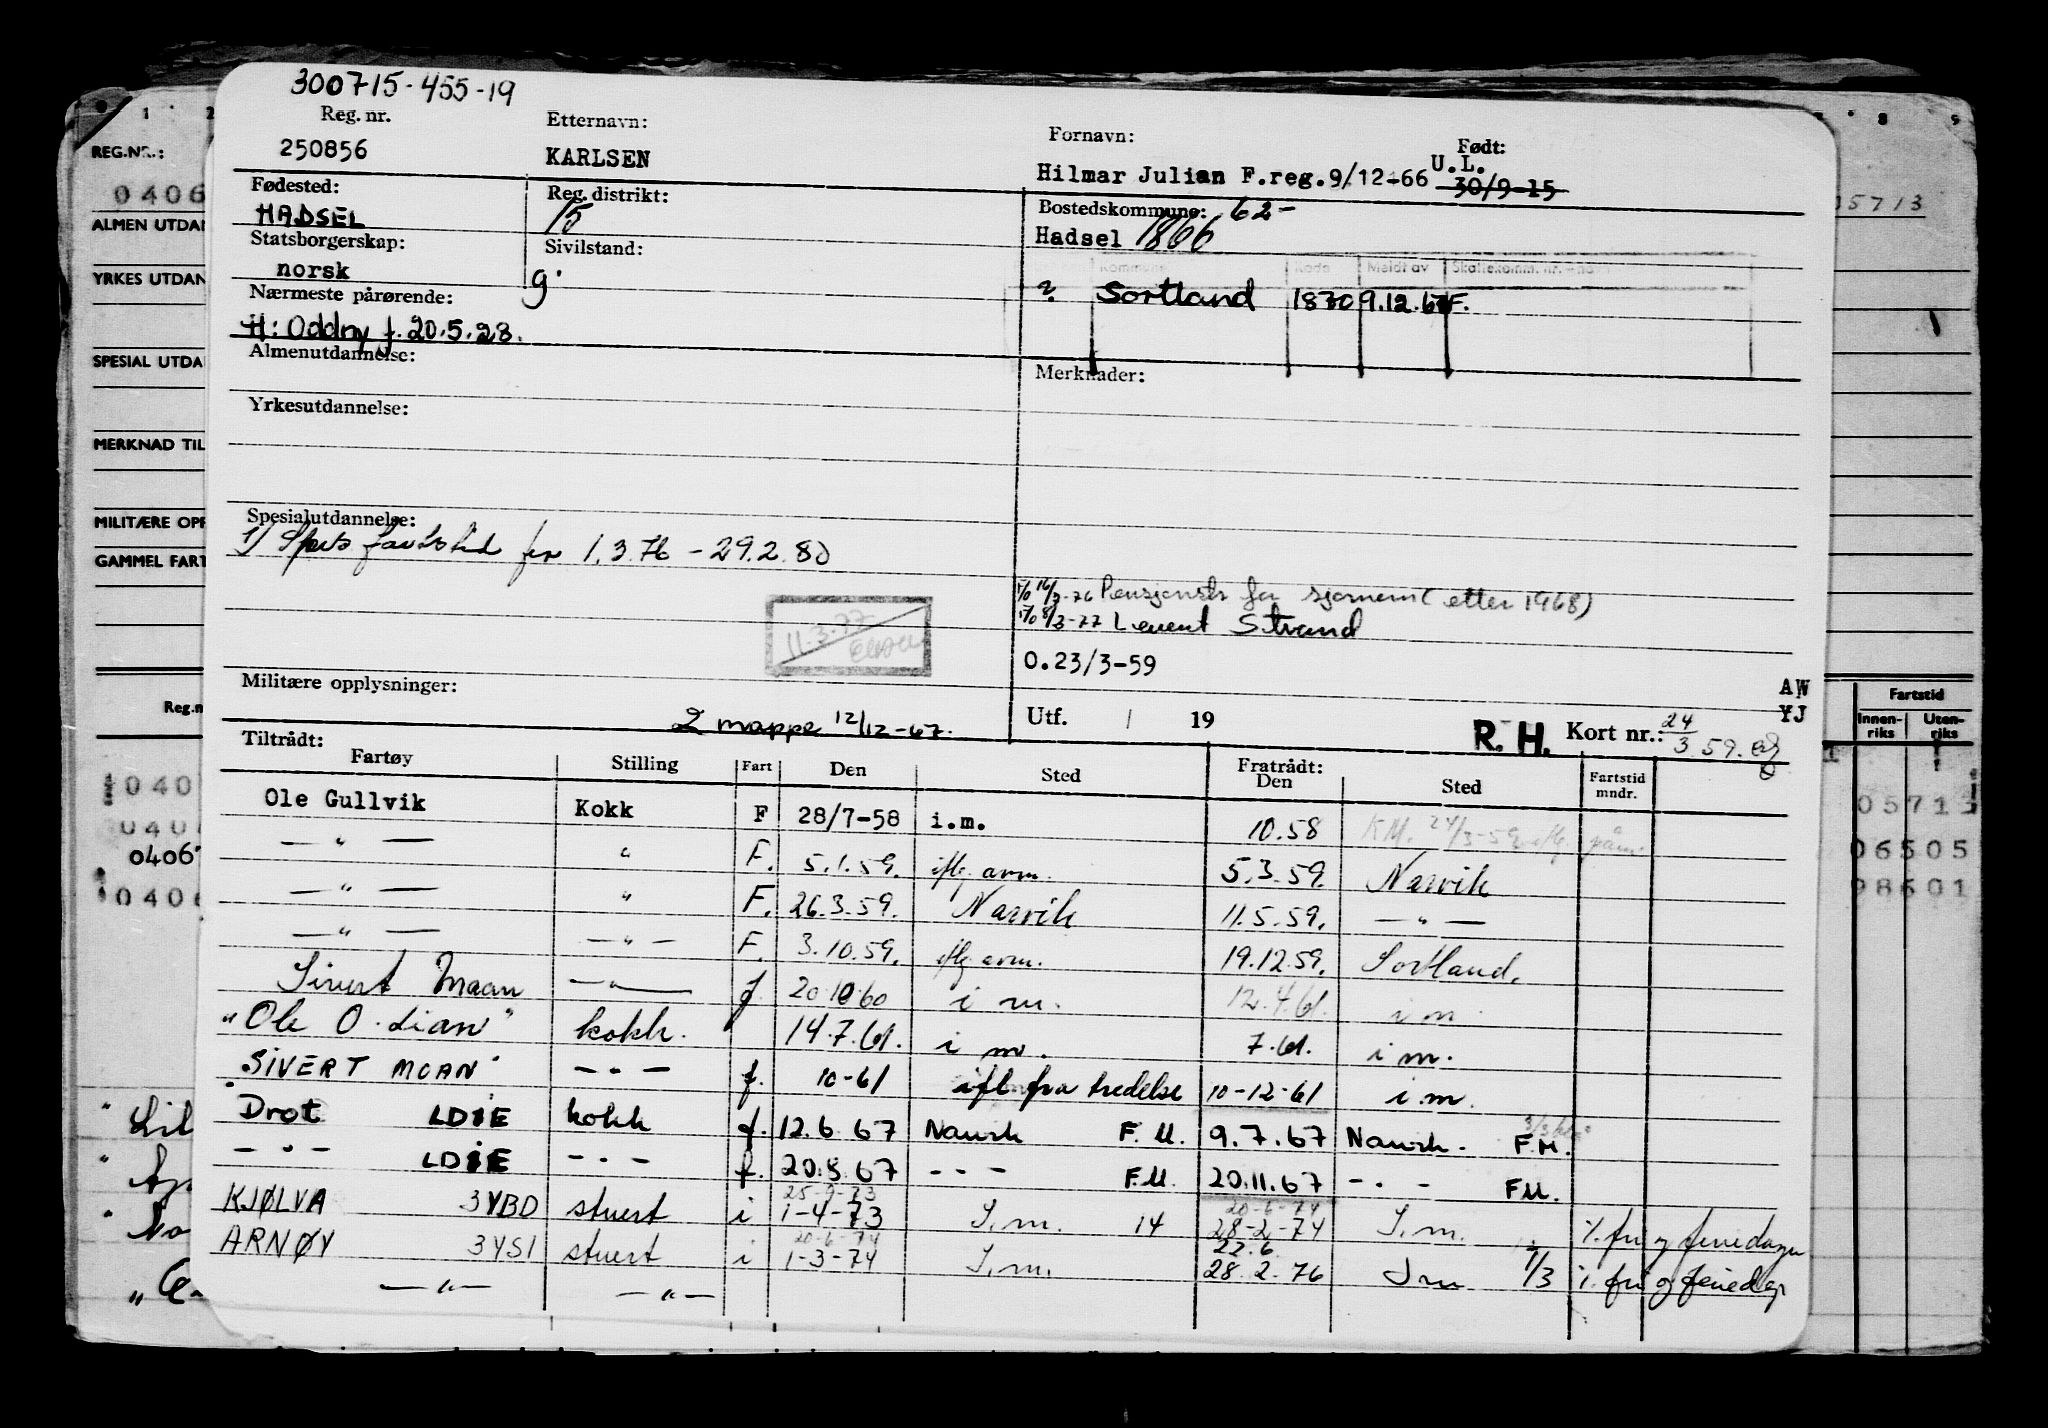 300715-455-19
Reg. nr. Etternavn: Fornavn: Født:
250856 KARLSEN Hilmar Julian F.reg.9/12-66 U.L. 30/9-15
Fødested: Reg. distrikt: Bostedskommune: 62-
HADSEL 15 Hadsel 1866
Statsborgerskap: Sivilstand:
norsk g.
Kommune Kode Meldt av Skattekomm. nr.
Nærmeste pårørende: ? Sortland 1870 9.12.67 F.
H: Oddny f. 20.5.28.
Almenutdannelse: Merknader:
Yrkesutdannelse:
Spesialutdannelse:
1) fartstid for 1.3.76 - 29.2.80
16/3-76 Pensjonstr for sjømenn (etter 1968)
8/3-77 Levert Strand
11.3.77
O.23/3-59
Militære opplysninger: AW
YJ
2 mappe 12/12-67. Utf. / 19 R. H. Kort nr.: 24/3 59.
Tiltrådt: Fratrådt:
Fartøy Stilling Fart Den Sted Den Sted Fartstid mndr.
Ole Gullvik Kokk F 28/7-58 i.m. 10.58 KM. 24/3-59
— " — " F. 5.1.59. iflg. avm. 5.3.59. Narvik
— " — " F. 26.3.59. Narvik 11.5.59. — " —
— " — — " — F. 3.10.59. iflg avm. 19.12.59. Sortland.
Sivert Moan — " — f 20.10.60 i m. 12.4.61. i m
"Ole O. Lian" kokk. 14.7.61. i m. 7.61. i m.
SIVERT MOAN - - - f. 10-61 ifl. fra tredelse 10-12-61 i.m.
Drot LDIE kokk f. 12.6.67 Narvik F.M. 9.7.67 Narvik. F.M.
- " - LDIE - - - f. 20.8.67 - - - F.M. 20.11.67 - . - F.M.
25-9-73 20-6-74
KJØLVA 3YBD stuert i 1-4-73 I.m. 14 28-2-74 I.m. %. fri og feriedager
20-6-74 22.6.
ARNØY 3YSI stuert i 1-3-74 I.m. 28.2.76 I m 1/3 %. fri og feriedag
— " — — " —
REG.NR.:
0406
ALMEN UTDAN
YRKES UTDAN
SPESIAL UTDA
MERKNAD TIL
MILITÆRE OPP
GAMMEL FART
Reg.n
040
040
0406
0406
Fartstid
Innen-riks Uten-riks
05713
06505
98601